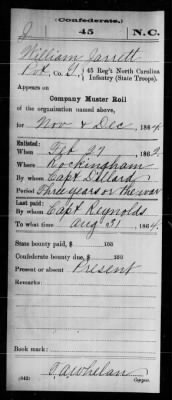 (Confederate.)
J 45 N.C.
William Jarrett
Pvt, Co. G, 45 Reg't North Carolina
Infantry (State Troops).
Appears on
Company Muster Roll
of the organization named above,
for Nov & Dec, 1864.
Enlisted:
When Feb 27, 1862.
Where Rockingham
By whom Capt Dillard
Period Three years or the war
Last paid:
By whom Capt Reynolds
To what time Aug 31, 1864.
State bounty paid, $ 100
Confederate bounty due, $ 100
Present or absent Present
Remarks:
Book mark:
(642) C. A. Whelan
Copyist.